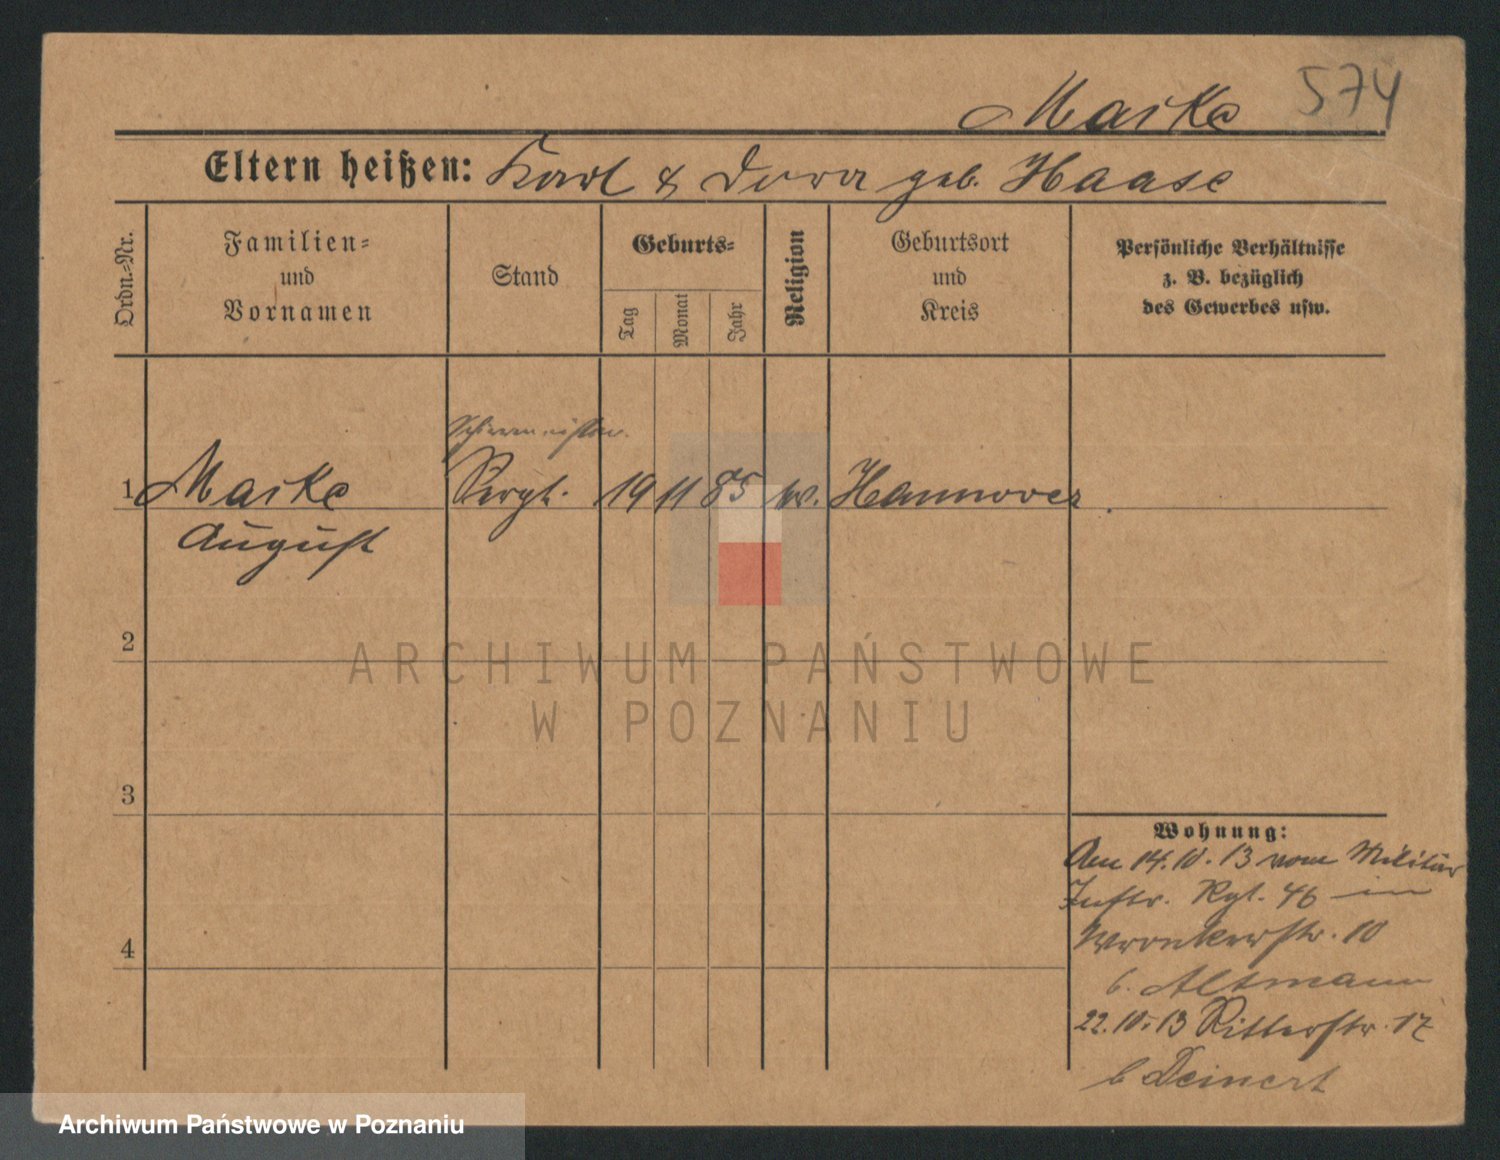 Maike 574
Eltern heißen: Karl & Dora geb. Haase
Ordn.=Nr.
Familien=
und
Vornamen
Stand
Geburts=
Tag
Monat
Jahr
Religion
Geburtsort
und
Kreis
Persönliche Verhältnisse
z. B. bezüglich
des Gewerbes usw.
Schirrmeister.
1 Maike Sergt. 19 11 85 Hannover.
August
2
3
4
Wohnung:
Am 14.10.13 vom Militär
Inftr. Rgt. 46 in
Wronkerstr. 10
b. Altmann
22.10.13 Ritterstr. 17
b Deinert
ARCHIWUM PAŃSTWOWE
W POZNANIU
Archiwum Państwowe w Poznaniu